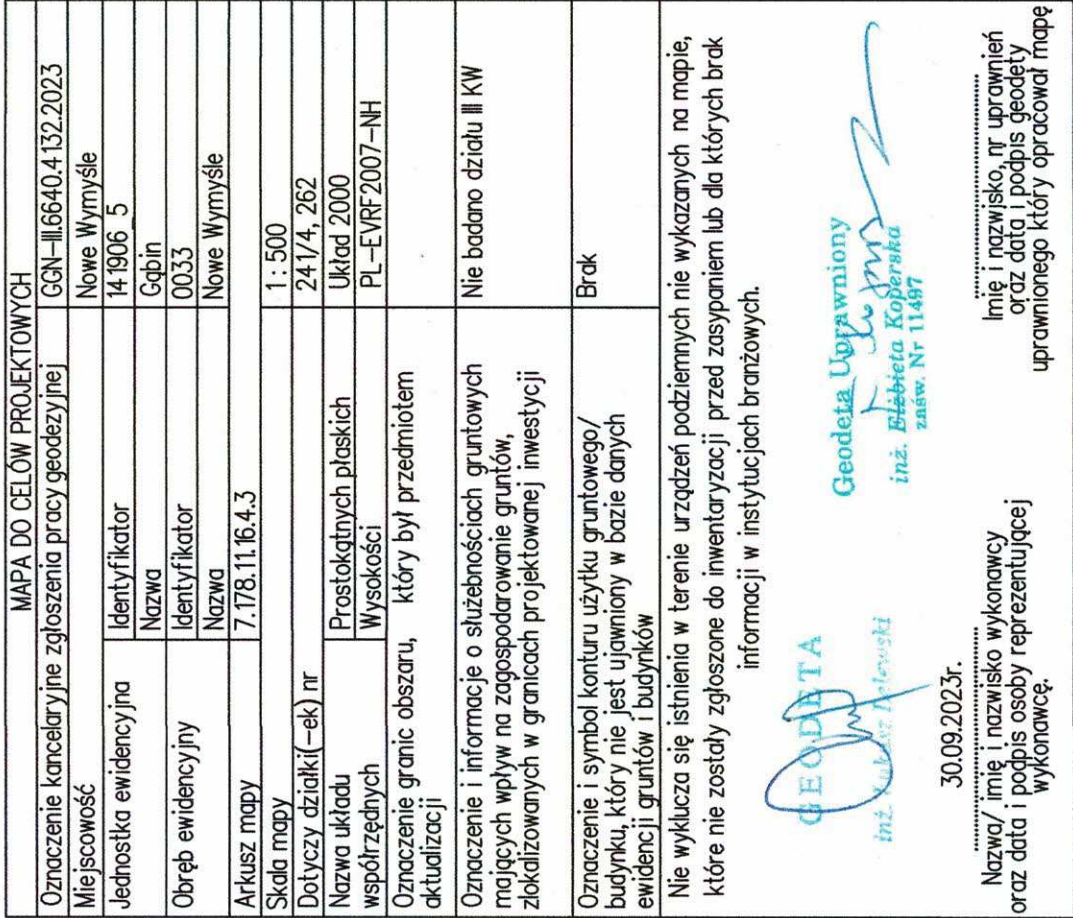 MAPA DO CELÓW PROJEKTOWYCH
Oznaczenie kancelaryjne zgłoszenia pracy geodezyjnej GGN-III.6640.4132.2023
Miejscowość Nowe Wymyśle
Jednostka ewidencyjna Identyfikator 141906_5
Nazwa Gąbin
Obręb ewidencyjny Identyfikator 0033
Nazwa Nowe Wymyśle
Arkusz mapy 7.178.11.16.4.3
Skala mapy 1 : 500
Dotyczy działki(-ek) nr 241/4, 262
Nazwa układu Prostokątnych płaskich Układ 2000
współrzędnych Wysokości PL-EVRF2007-NH
Oznaczenie granic obszaru, który był przedmiotem
aktualizacji
Oznaczenie i informacje o służebnościach gruntowych
mających wpływ na zagospodarowanie gruntów,
zlokalizowanych w granicach projektowanej inwestycji
Nie badano działu III KW
Oznaczenie i symbol konturu użytku gruntowego/
budynku, który nie jest ujawniony w bazie danych
ewidencji gruntów i budynków
Brak
Nie wyklucza się istnienia w terenie urządzeń podziemnych nie wykazanych na mapie,
które nie zostały zgłoszone do inwentaryzacji przed zasypaniem lub dla których brak
informacji w instytucjach branżowych.
GEODETA
inż.
30.09.2023r.
Nazwa/ imię i nazwisko wykonawcy
oraz data i podpis osoby reprezentującej
wykonawcę.
Geodeta Uprawniony
inż. Elżbieta Koperska
zaśw. Nr 11497
Imię i nazwisko, nr uprawnień
oraz data i podpis geodety
uprawnionego który opracował mapę